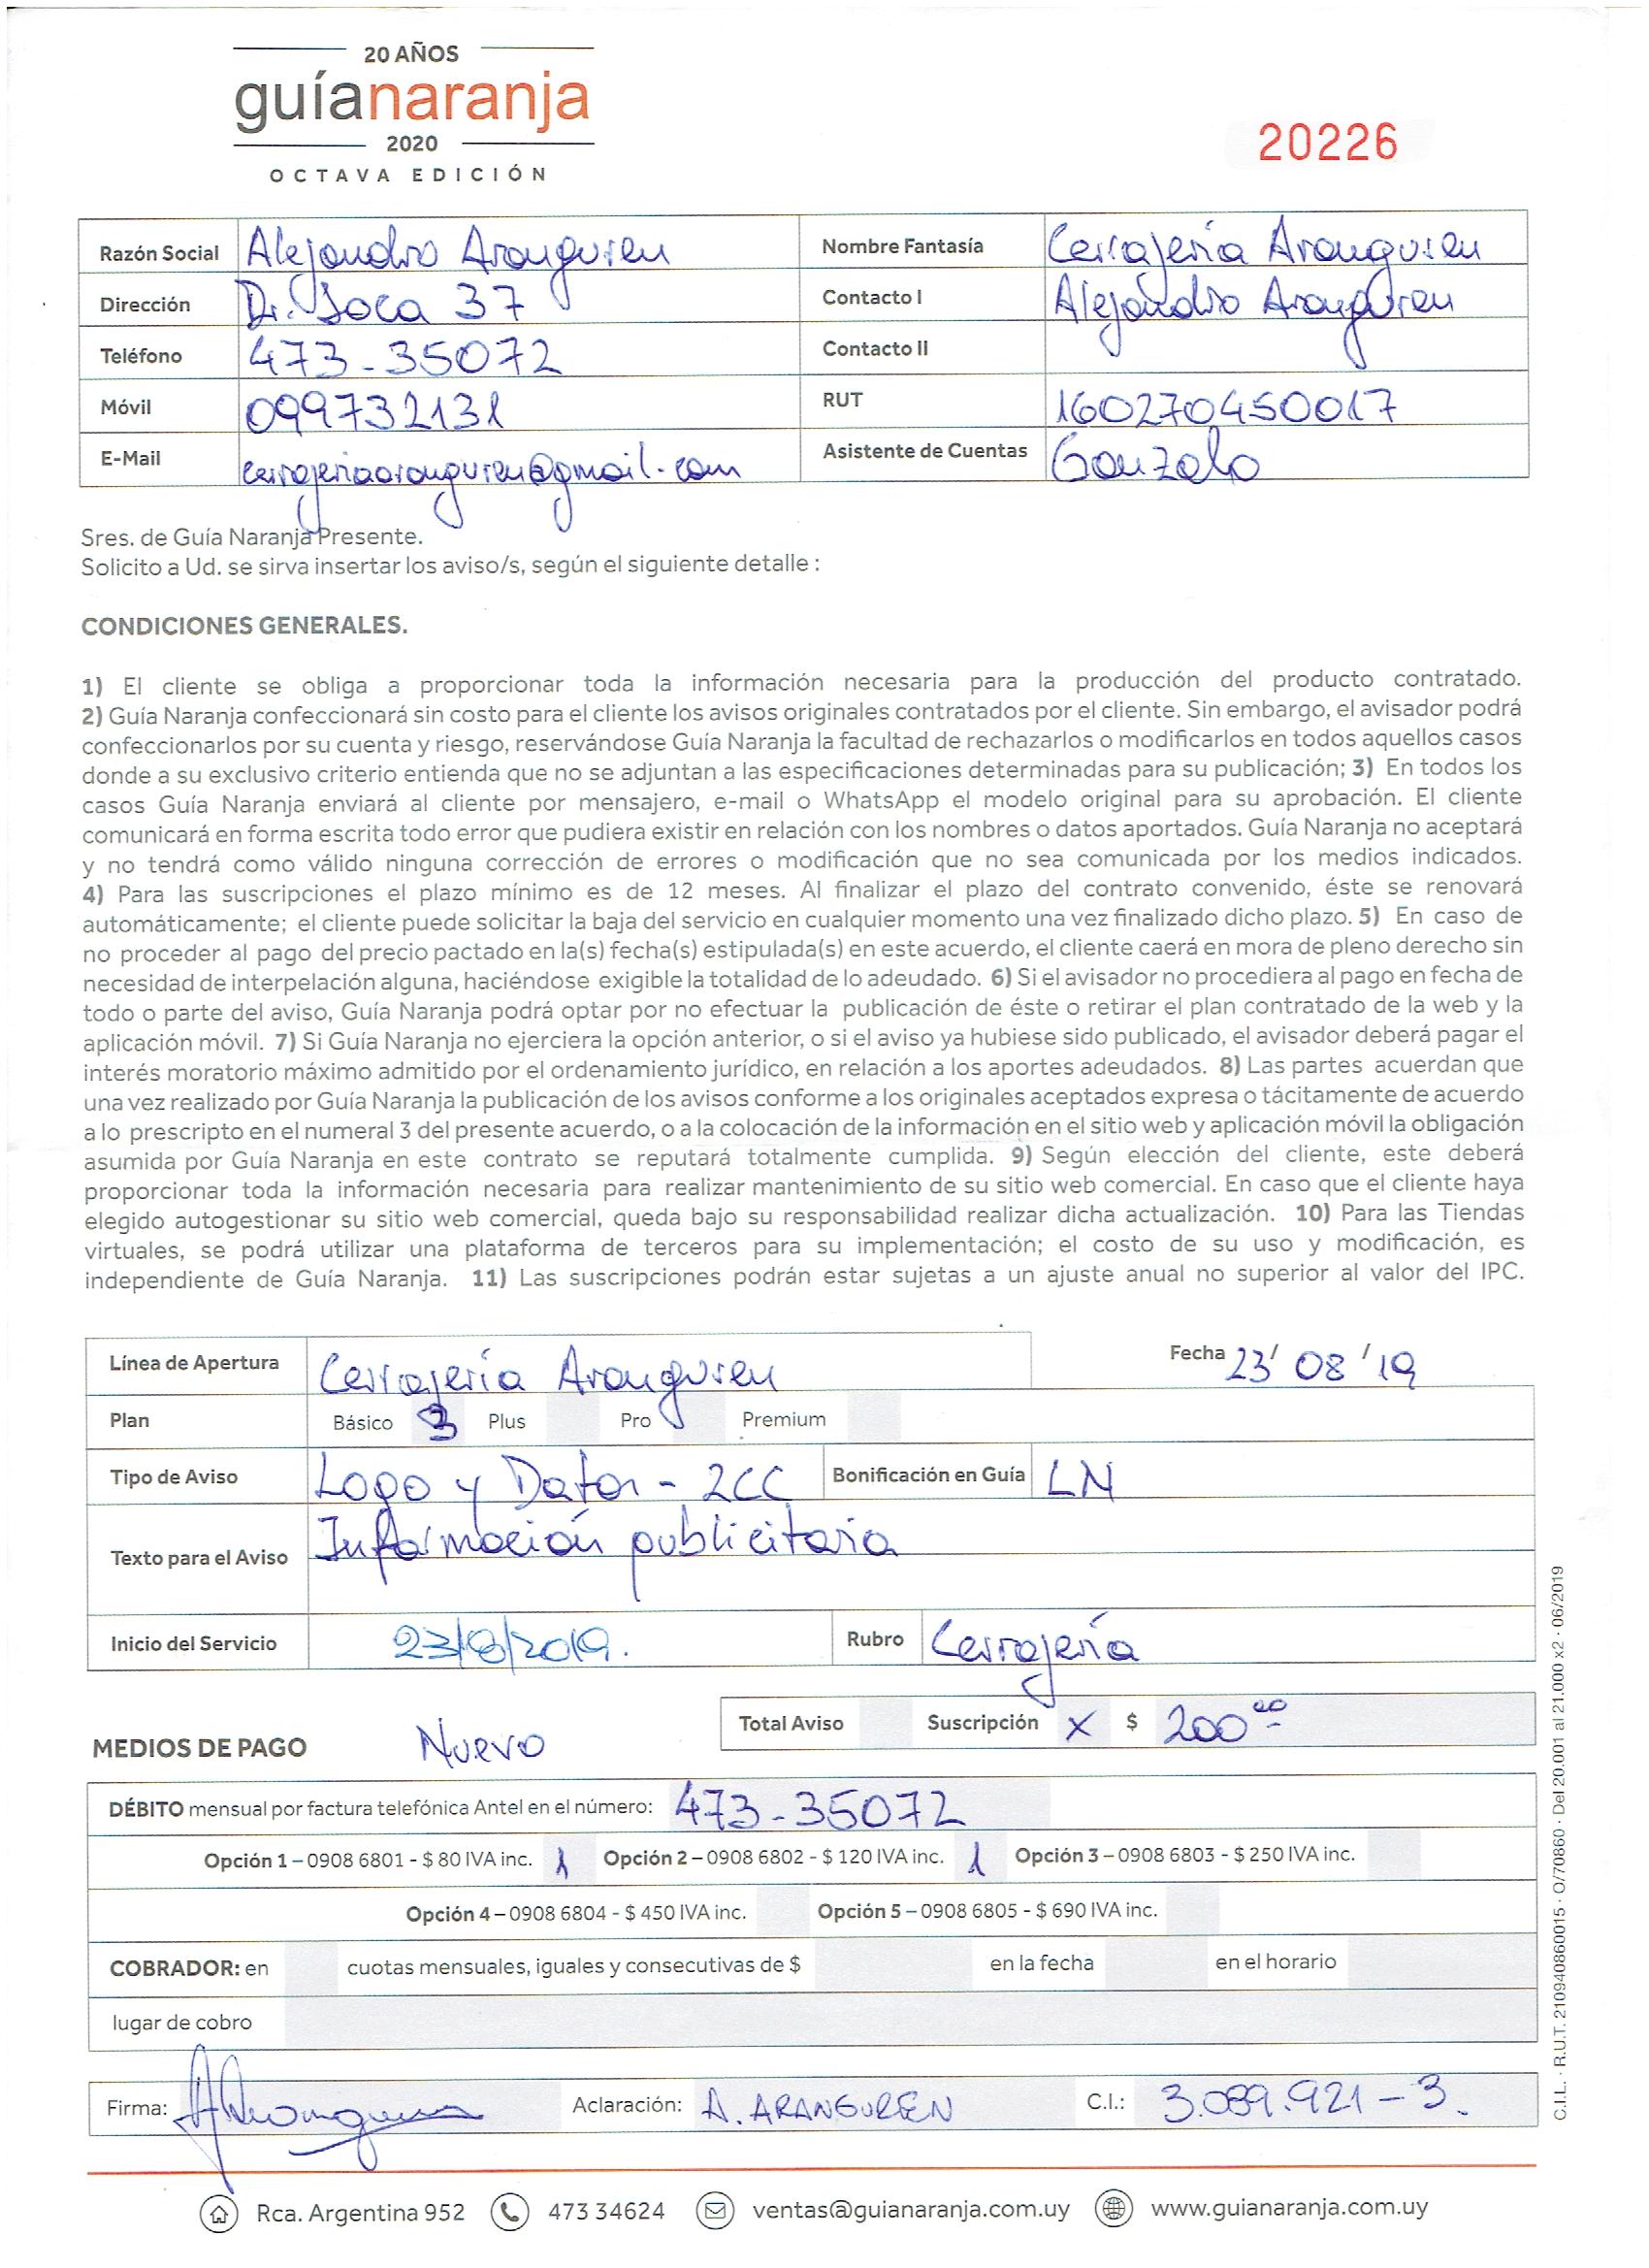 20 AÑOS
guíanaranja
2020
OCTAVA EDICIÓN
20226
Razón Social Alejandro Aranguren Nombre Fantasía Cerrajería Aranguren
Dirección Dr. Soca 37 Contacto I Alejandro Aranguren
Teléfono 473-35072 Contacto II
Móvil 099732131 RUT 160270450017
E-Mail cerrajeriaaranguren@gmail.com Asistente de Cuentas Gonzalo
Sres. de Guía Naranja Presente.
Solicito a Ud. se sirva insertar los aviso/s, según el siguiente detalle :
CONDICIONES GENERALES.
1) El cliente se obliga a proporcionar toda la información necesaria para la producción del producto contratado.
2) Guía Naranja confeccionará sin costo para el cliente los avisos originales contratados por el cliente. Sin embargo, el avisador podrá
confeccionarlos por su cuenta y riesgo, reservándose Guía Naranja la facultad de rechazarlos o modificarlos en todos aquellos casos
donde a su exclusivo criterio entienda que no se adjuntan a las especificaciones determinadas para su publicación; 3) En todos los
casos Guía Naranja enviará al cliente por mensajero, e-mail o WhatsApp el modelo original para su aprobación. El cliente
comunicará en forma escrita todo error que pudiera existir en relación con los nombres o datos aportados. Guía Naranja no aceptará
y no tendrá como válido ninguna corrección de errores o modificación que no sea comunicada por los medios indicados.
4) Para las suscripciones el plazo mínimo es de 12 meses. Al finalizar el plazo del contrato convenido, éste se renovará
automáticamente; el cliente puede solicitar la baja del servicio en cualquier momento una vez finalizado dicho plazo. 5) En caso de
no proceder al pago del precio pactado en la(s) fecha(s) estipulada(s) en este acuerdo, el cliente caerá en mora de pleno derecho sin
necesidad de interpelación alguna, haciéndose exigible la totalidad de lo adeudado. 6) Si el avisador no procediera al pago en fecha de
todo o parte del aviso, Guía Naranja podrá optar por no efectuar la publicación de éste o retirar el plan contratado de la web y la
aplicación móvil. 7) Si Guía Naranja no ejerciera la opción anterior, o si el aviso ya hubiese sido publicado, el avisador deberá pagar el
interés moratorio máximo admitido por el ordenamiento jurídico, en relación a los aportes adeudados. 8) Las partes acuerdan que
una vez realizado por Guía Naranja la publicación de los avisos conforme a los originales aceptados expresa o tácitamente de acuerdo
a lo prescripto en el numeral 3 del presente acuerdo, o a la colocación de la información en el sitio web y aplicación móvil la obligación
asumida por Guía Naranja en este contrato se reputará totalmente cumplida. 9) Según elección del cliente, este deberá
proporcionar toda la información necesaria para realizar mantenimiento de su sitio web comercial. En caso que el cliente haya
elegido autogestionar su sitio web comercial, queda bajo su responsabilidad realizar dicha actualización. 10) Para las Tiendas
virtuales, se podrá utilizar una plataforma de terceros para su implementación; el costo de su uso y modificación, es
independiente de Guía Naranja. 11) Las suscripciones podrán estar sujetas a un ajuste anual no superior al valor del IPC.
Línea de Apertura Cerrajería Aranguren Fecha 23/ 08 /19
Plan Básico 3 Plus Pro Premium
Tipo de Aviso Logo y Datos - 2CC Bonificación en Guía LN
Texto para el Aviso Información publicitaria
Inicio del Servicio 23/8/2019. Rubro Cerrajería
Total Aviso Suscripción X $ 200 00
MEDIOS DE PAGO Nuevo
DÉBITO mensual por factura telefónica Antel en el número: 473-35072
Opción 1 – 0908 6801 - $ 80 IVA inc. 1 Opción 2 – 0908 6802 - $ 120 IVA inc. 1 Opción 3 – 0908 6803 - $ 250 IVA inc.
Opción 4 – 0908 6804 - $ 450 IVA inc. Opción 5 – 0908 6805 - $ 690 IVA inc.
COBRADOR: en cuotas mensuales, iguales y consecutivas de $ en la fecha en el horario
lugar de cobro
Firma: Aclaración: A. ARANGUREN C.I.: 3.089.921-3.
Rca. Argentina 952 473 34624 ventas@guianaranja.com.uy www.guianaranja.com.uy
C.I.L. · R.U.T. 210940860015 · O/70860 · Del 20.001 al 21.000 x2 · 06/2019